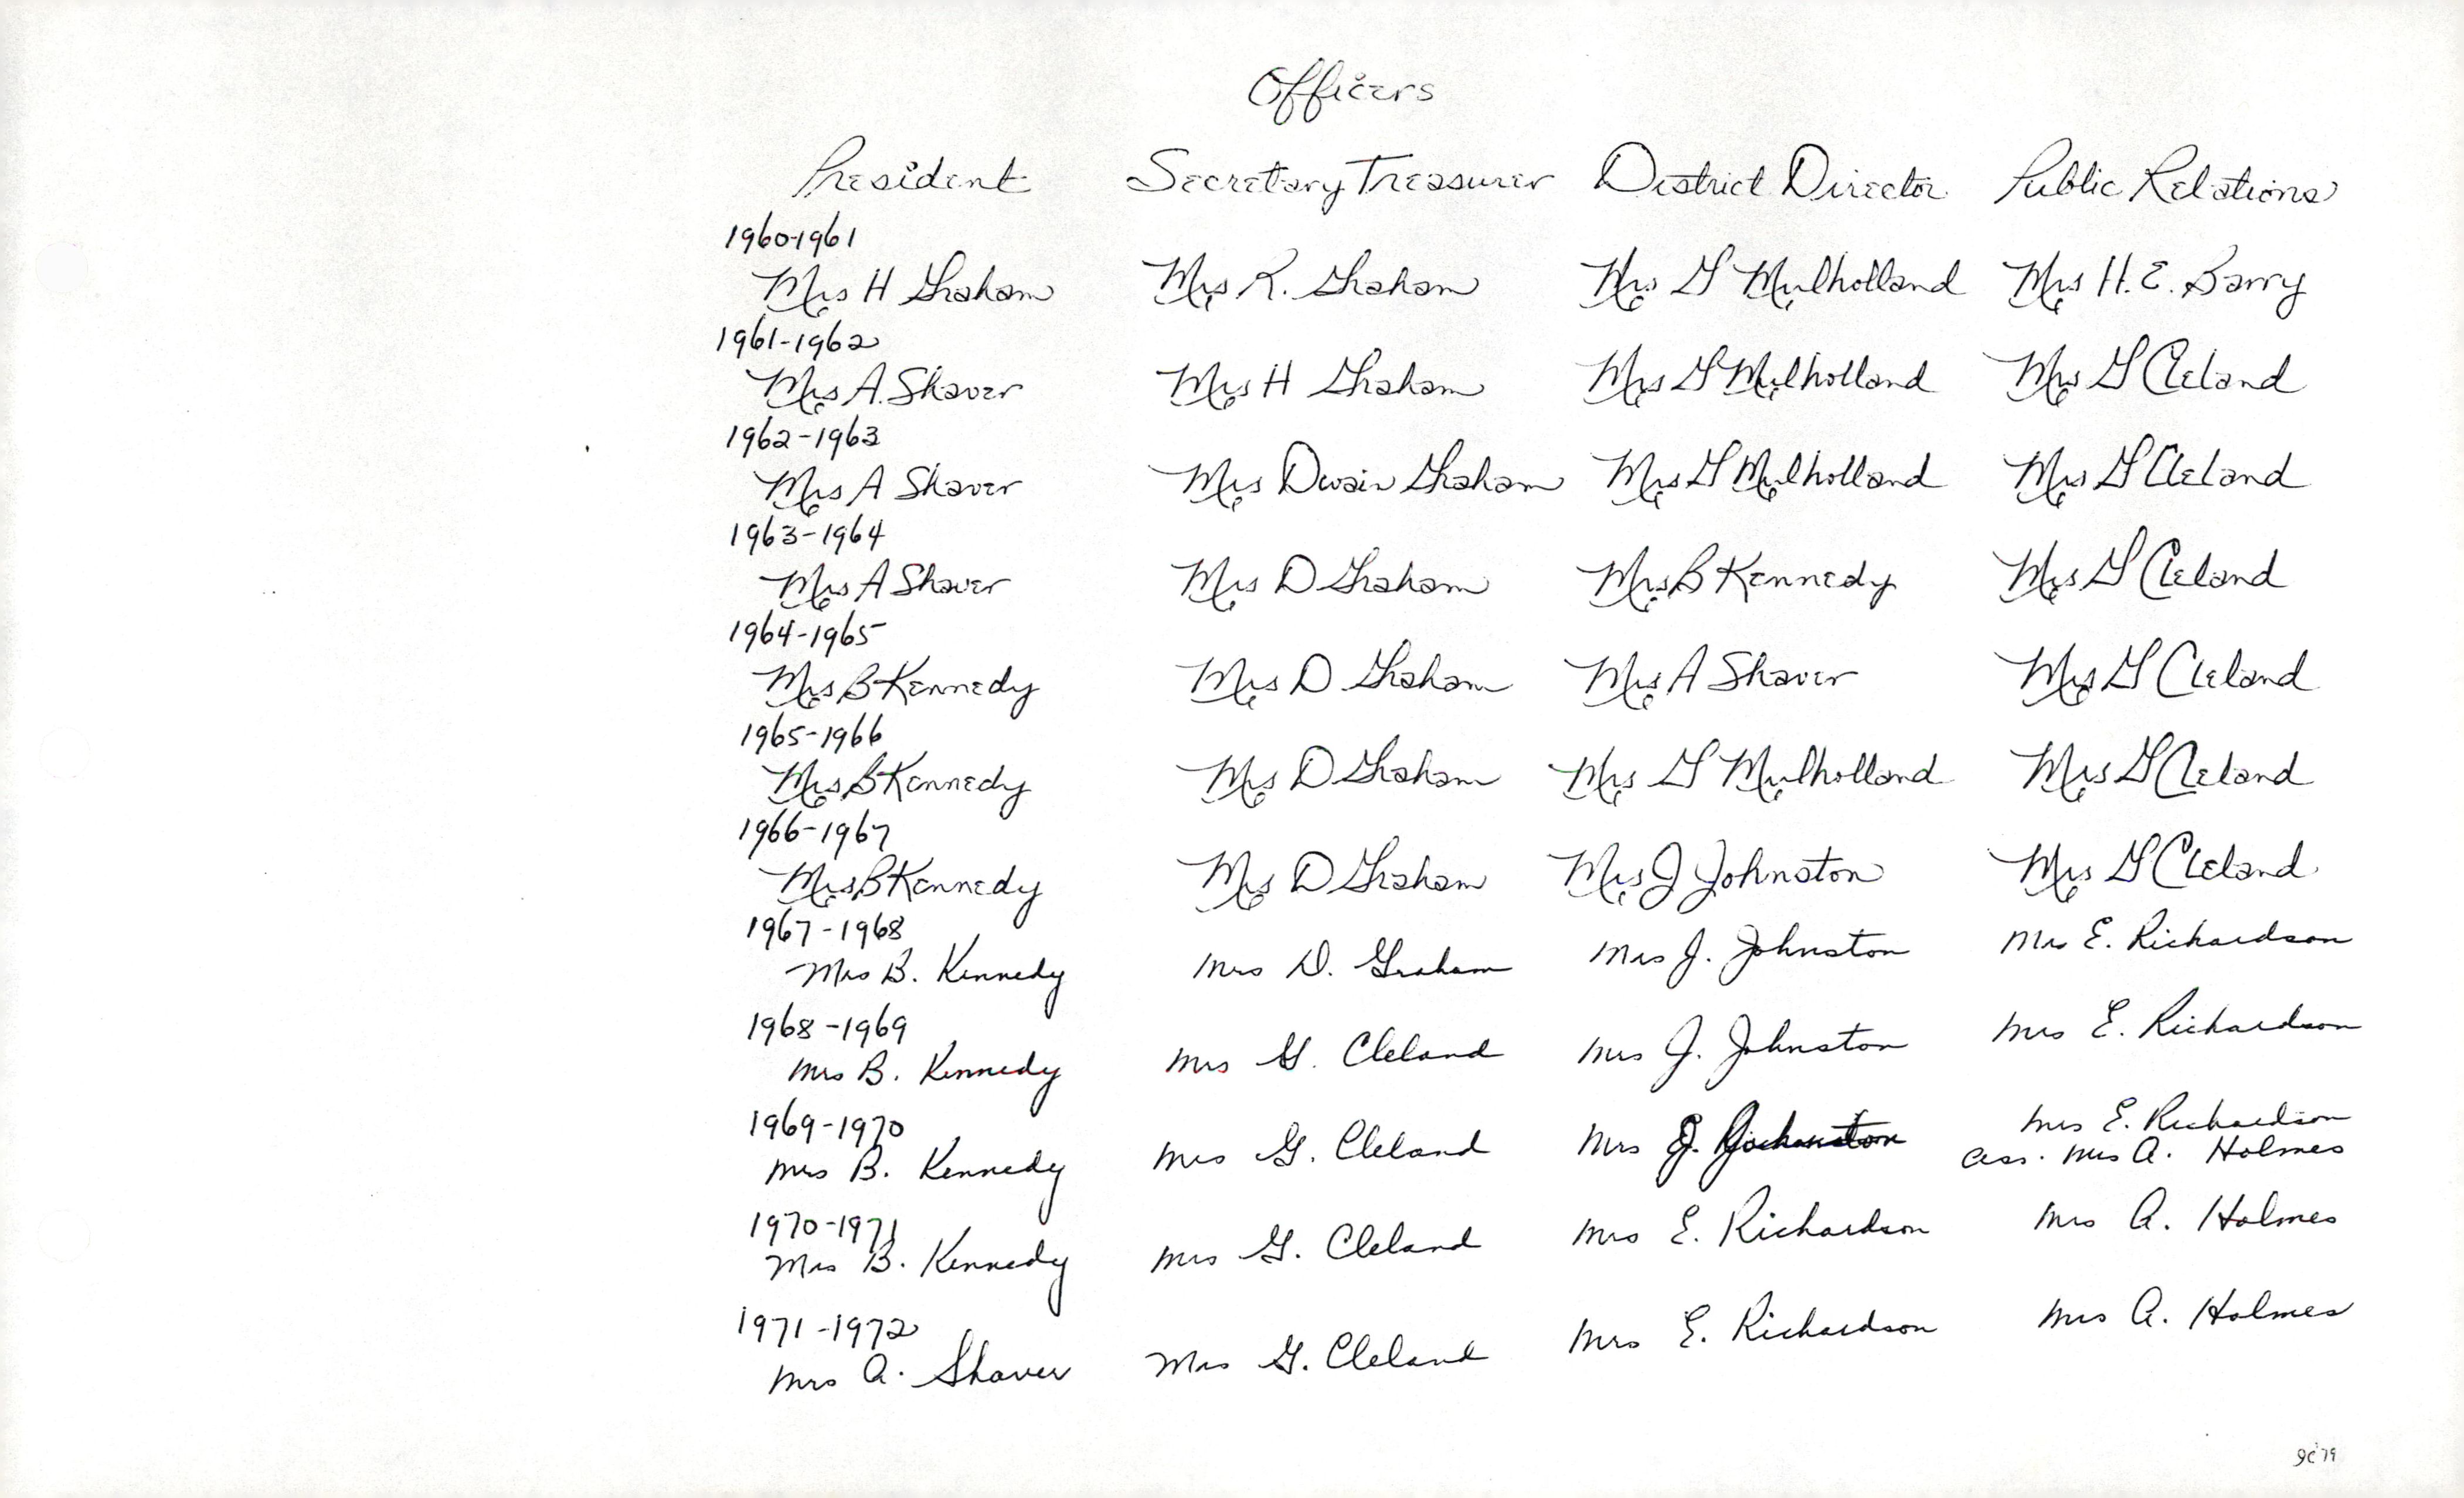 Officers
President Secretary Treasurer District Director Public Relations
1960-1961
Mrs H Graham Mrs R. Graham Mrs G Mulholland Mrs H. E. Barry
1961-1962
Mrs A. Shaver Mrs H Graham Mrs G Mulholland Mrs G Cleland
1962-1963
Mrs A Shaver Mrs Dwain Graham Mrs G Mulholland Mrs G Cleland
1963-1964
Mrs A Shaver Mrs D Graham Mrs B Kennedy Mrs G Cleland
1964-1965
Mrs B Kennedy Mrs D Graham Mrs A Shaver Mrs G Cleland
1965-1966
Mrs B Kennedy Mrs D Graham Mrs G Mulholland Mrs G Cleland
1966-1967
Mrs B Kennedy Mrs D Graham Mrs J Johnston Mrs G Cleland
1967-1968
Mrs B. Kennedy Mrs D. Graham Mrs J. Johnston Mrs E. Richardson
1968-1969
Mrs B. Kennedy Mrs G. Cleland Mrs J. Johnston Mrs E. Richardson
1969-1970
Mrs B. Kennedy Mrs G. Cleland Mrs J. Johnston Mrs E. Richardson
ass. Mrs A. Holmes
1970-1971
Mrs B. Kennedy Mrs G. Cleland Mrs E. Richardson Mrs A. Holmes
1971-1972
Mrs A. Shaver Mrs G. Cleland Mrs E. Richardson Mrs A. Holmes